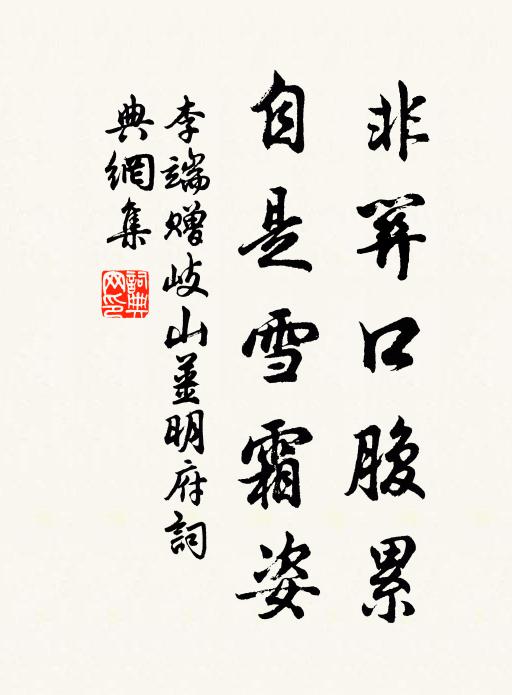 非關口腹累
自是雪霜姿
李端贈岐山薑明府詞
典網集
詞典
网印